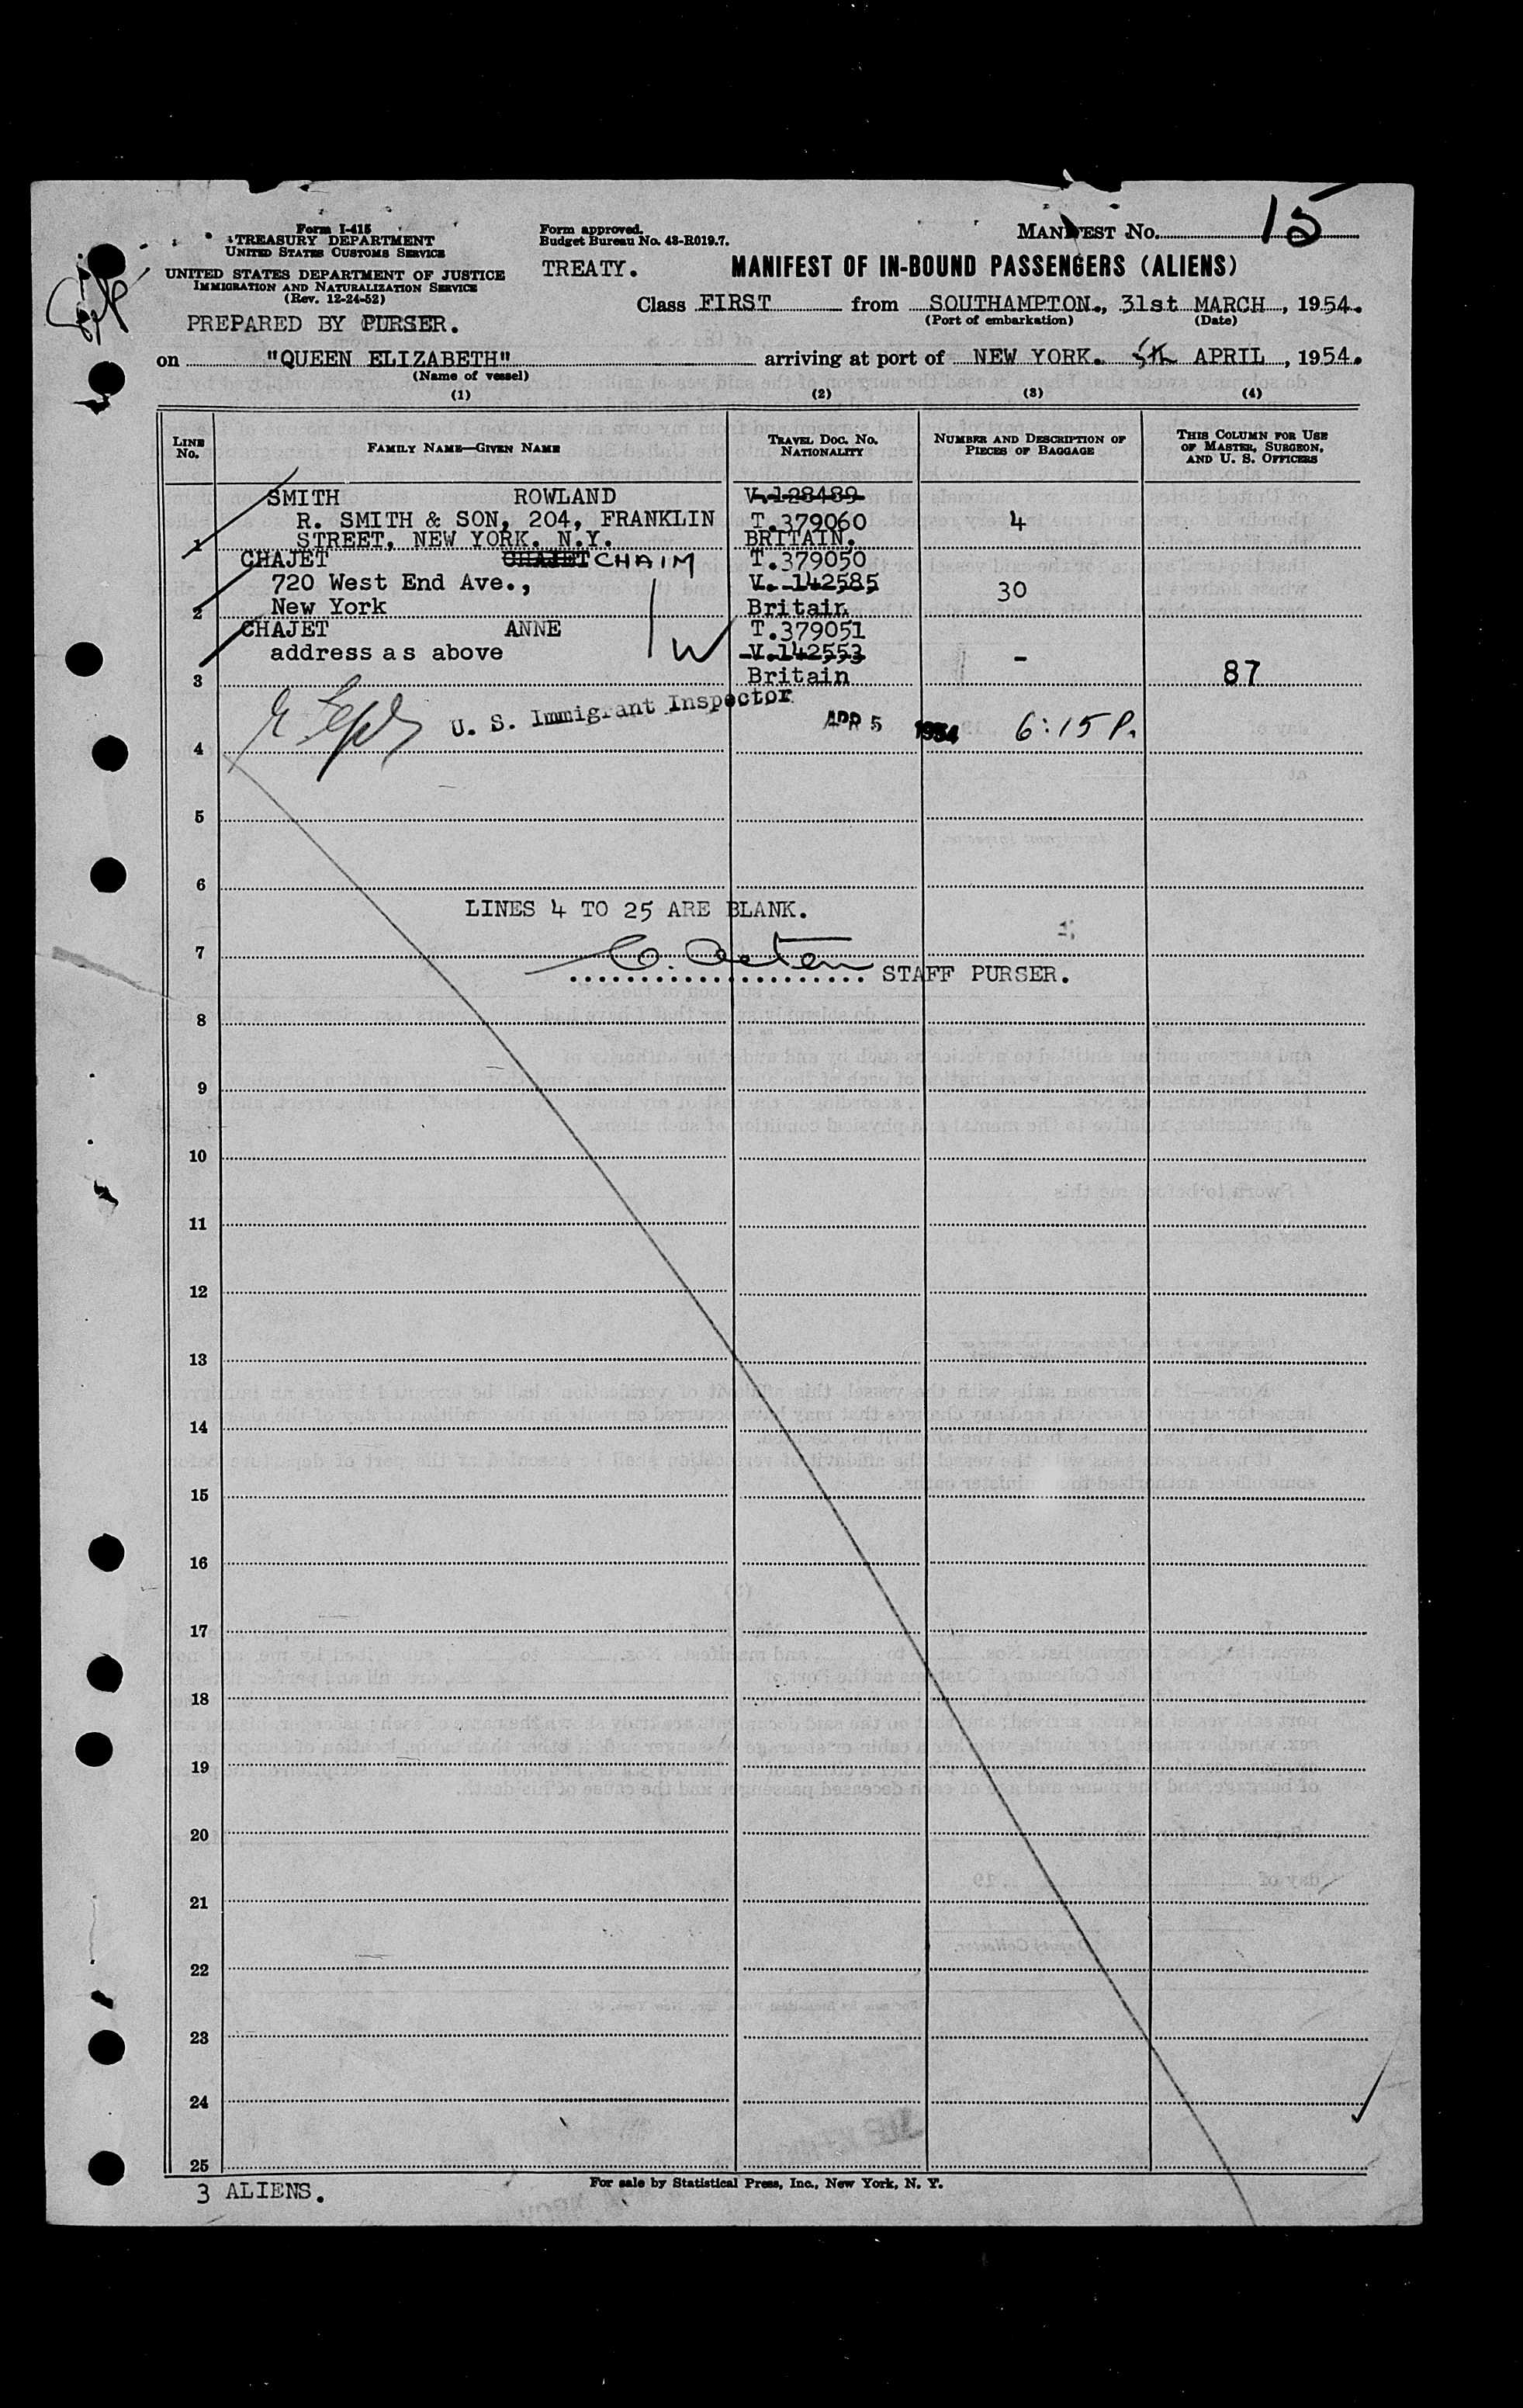 Form I-415
TREASURY DEPARTMENT
UNITED STATES CUSTOMS SERVICE
UNITED STATES DEPARTMENT OF JUSTICE
IMMIGRATION AND NATURALIZATION SERVICE
(Rev. 12-24-52)
PREPARED BY PURSER.
Form approved.
Budget Bureau No. 43-R019.7.
TREATY.
MANIFEST No. 15
MANIFEST OF IN-BOUND PASSENGERS (ALIENS)
Class FIRST from SOUTHAMPTON., 31st MARCH, 1954.
(Port of embarkation) (Date)
on "QUEEN ELIZABETH" arriving at port of NEW YORK. 5th APRIL, 1954.
(Name of vessel)
(1) (2) (3) (4)
LINE No. FAMILY NAME—GIVEN NAME TRAVEL DOC. NO. NATIONALITY NUMBER AND DESCRIPTION OF PIECES OF BAGGAGE THIS COLUMN FOR USE OF MASTER, SURGEON, AND U. S. OFFICERS
SMITH ROWLAND V.128489
R. SMITH & SON, 204, FRANKLIN T.379060 4
1 STREET, NEW YORK. N.Y. BRITAIN.
CHAJET CHAJET CHAIM T.379050
720 West End Ave., V. 142585 30
2 New York Britain
CHAJET ANNE T.379051
address as above W V.142553 -
3 Britain 87
U. S. Immigrant Inspector APR 5 1954 6:15 P.
4
5
6
LINES 4 TO 25 ARE BLANK.
7
STAFF PURSER.
8
9
10
11
12
13
14
15
16
17
18
19
20
21
22
23
24
25
3 ALIENS.
For sale by Statistical Press, Inc., New York, N. Y.